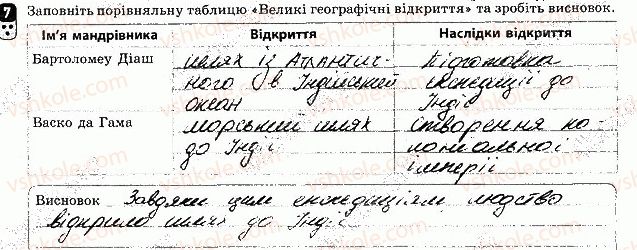 7 Заповніть порівняльну таблицю «Великі географічні відкриття» та зробіть висновок.
Ім'я мандрівника Відкриття Наслідки відкриття
Бартоломеу Діаш шлях із Атлантич- Підготовка
ного в Індійський експедиції до
океан Індії
Васко да Гама морський шлях Створення ко-
до Індії лоніальної
імперії
Висновок Завдяки цим експедиціям людство
відкрило шлях до Індії